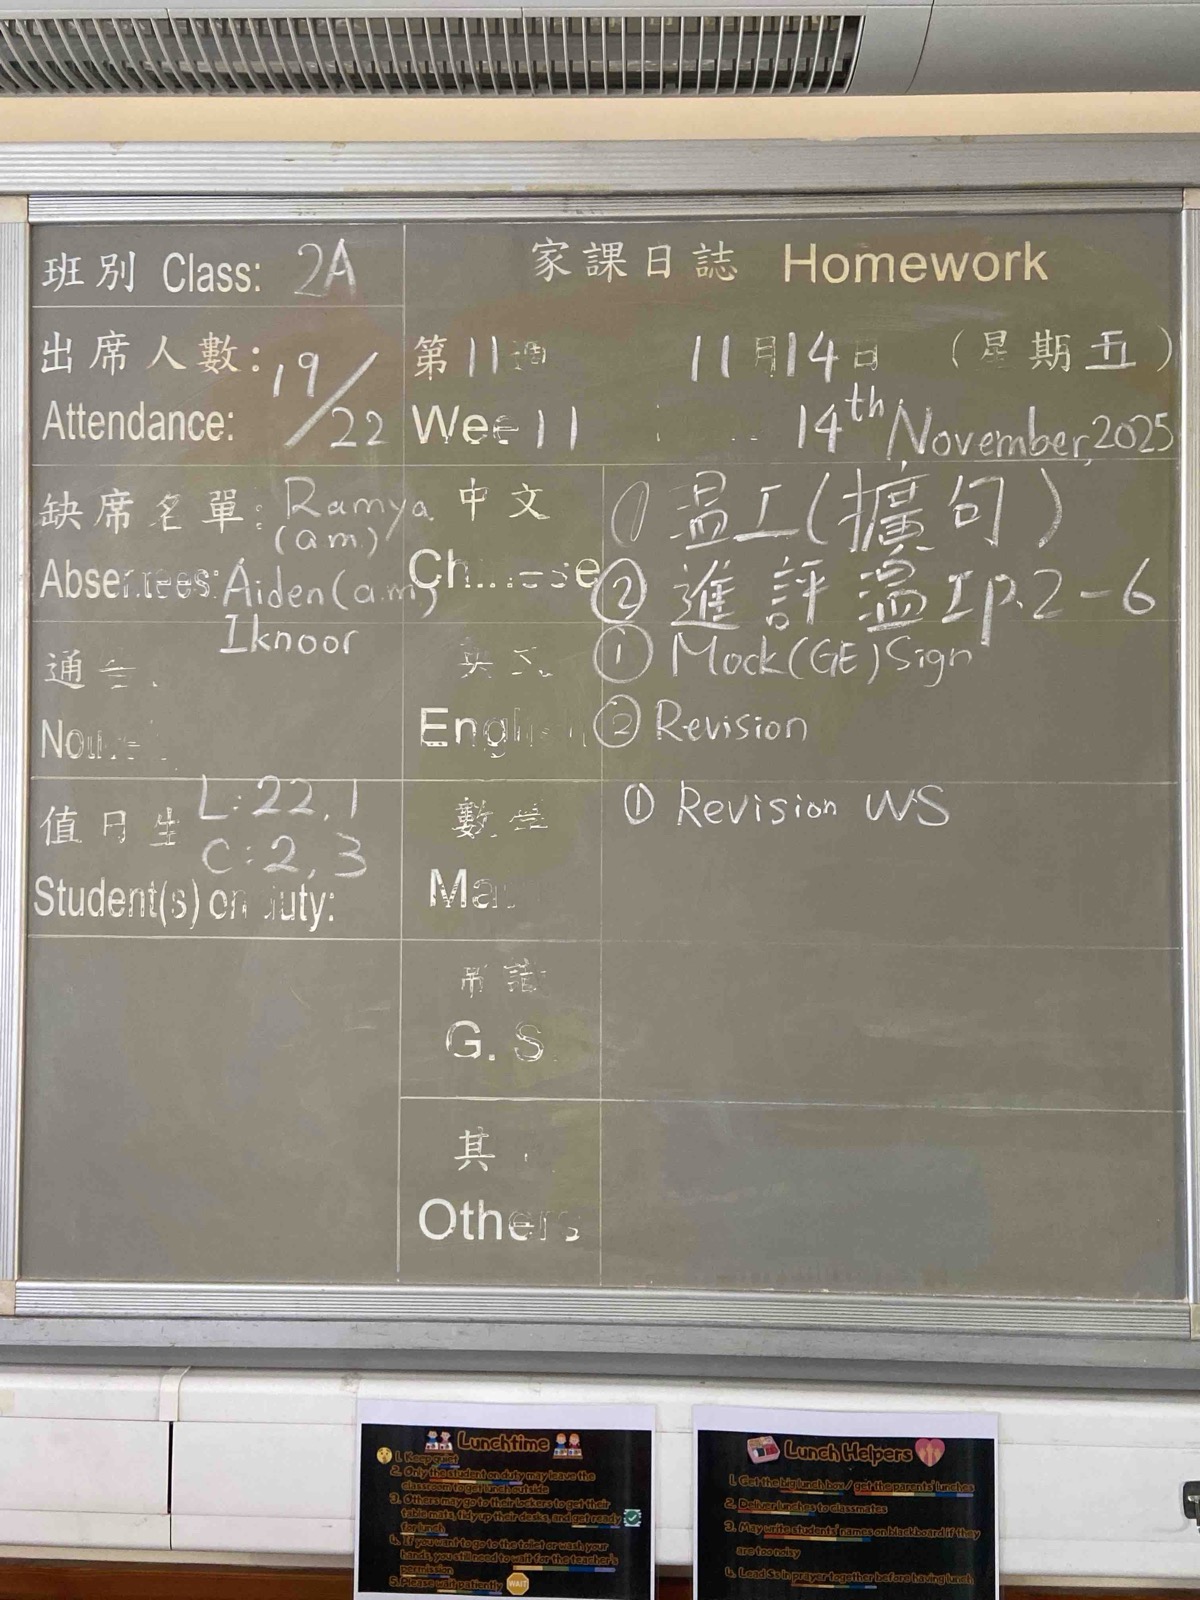 班別 Class: 2A
家課日誌 Homework
出席人數: 19/22
Attendance:
第11週 11月14日 (星期五)
Wee 11 14th November, 2025
缺席名單: Ramya (am)
Absentees: Aiden (a.m)
Iknoor
中文
Chinese
① 温工(擴句)
② 進評温工p.2-6
通告
英文
English
① Mock(GE) Sign
② Revision
值日生 L: 22, 1
C: 2, 3
Student(s) on duty:
數學
Ma
① Revision WS
常識
G. S.
其
Others
Lunchtime
1. Keep quiet
2. Only the student on duty may leave the
classroom to get lunch outside
3. Others may go to their lockers to get their
table mats, tidy up their desks, and get ready
for lunch
4. If you want to go to the toilet or wash your
hands, you still need to wait for the teacher's
permission
5. Please wait patiently WAIT
Lunch Helpers
1. Get the big lunch box / get the parents' lunches
2. Deliver lunches to classmates
3. May write students' names on blackboard if they
are too noisy
4. Lead Ss in prayer together before having lunch